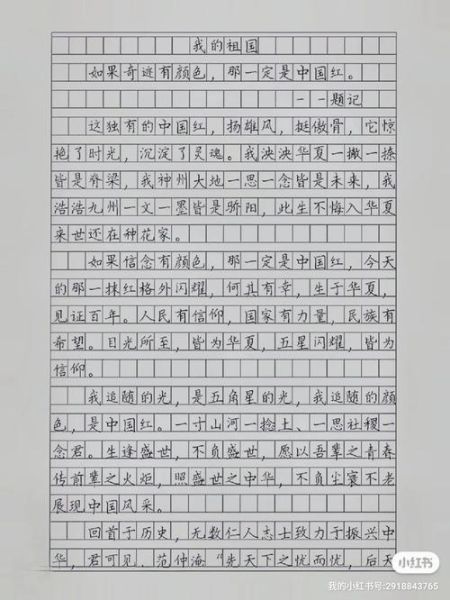 我的祖国
如果奇迹有颜色，那一定是中国红。
——题记
这独有的中国红，扬雄风，挺傲骨，它惊
艳了时光，沉淀了灵魂。我泱泱华夏一撇一捺
皆是脊梁，我神州大地一思一念皆是未来，我
浩浩九州一文一墨皆是骄阳，此生不悔入华夏
来世还在种花家。
如果信念有颜色，那一定是中国红，今天
的那一抹红格外闪耀，何其有幸，生于华夏，
见证百年。人民有信仰，国家有力量，民族有
希望。目光所至，皆为华夏，五星闪耀，皆为
信仰。
我追随的光，是五角星的光，我追随的颜
色，是中国红。一寸山河一捻土、一思社稷一
念君。生逢盛世，不负盛世，愿以吾辈之青春
传前辈之火炬，照盛世之中华，不负尘寰不老
展现中国风采。
回首于历史，无数仁人志士致力于振兴中
华，君可见，范仲淹“先天下之忧而忧，后天
小红书
我的小红书号:2918843765